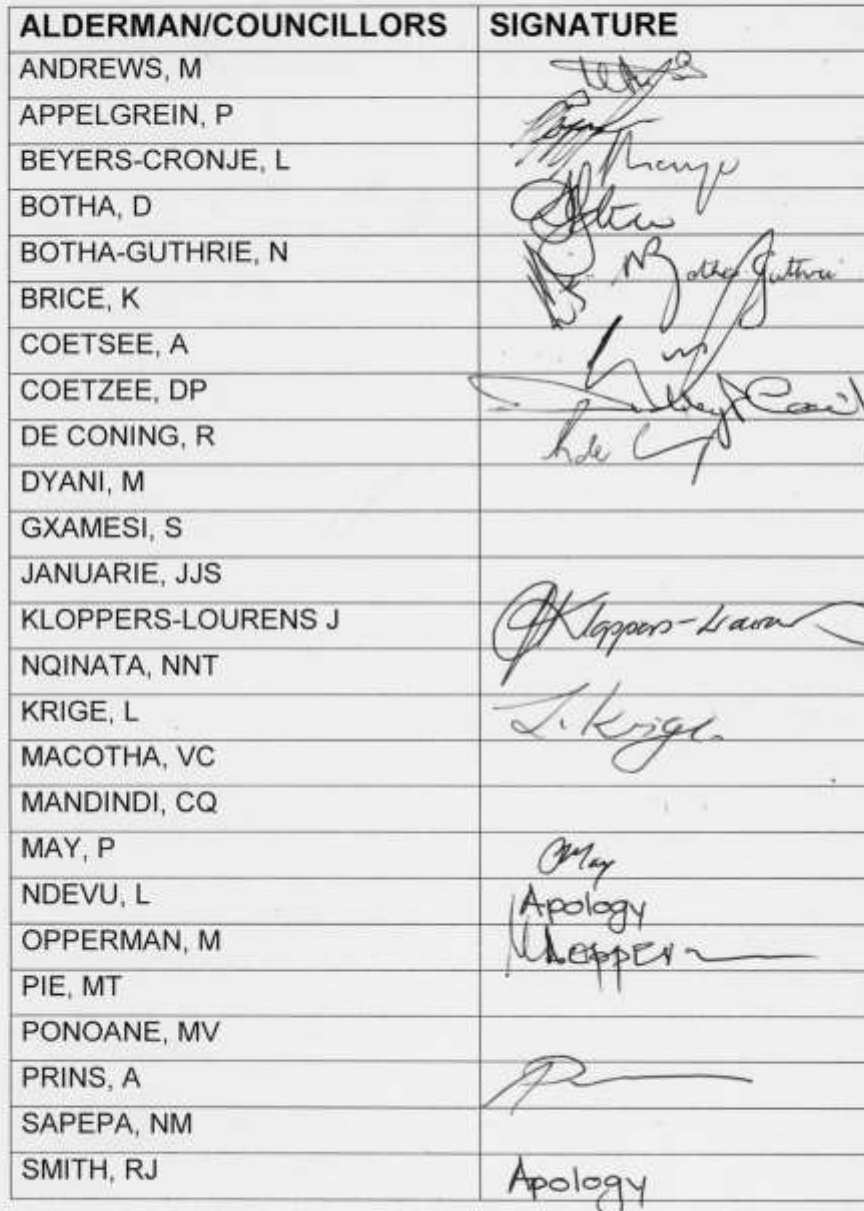 ALDERMAN/COUNCILLORS SIGNATURE
ANDREWS, M
APPELGREIN, P
BEYERS-CRONJE, L
BOTHA, D
BOTHA-GUTHRIE, N NBotha Guthrie
BRICE, K
COETSEE, A
COETZEE, DP
DE CONING, R R de
DYANI, M
GXAMESI, S
JANUARIE, JJS
KLOPPERS-LOURENS J JKloppers-
NQINATA, NNT
KRIGE, L L. Krige.
MACOTHA, VC
MANDINDI, CQ
MAY, P PMay
NDEVU, L Apology
OPPERMAN, M
PIE, MT
PONOANE, MV
PRINS, A
SAPEPA, NM
SMITH, RJ Apology